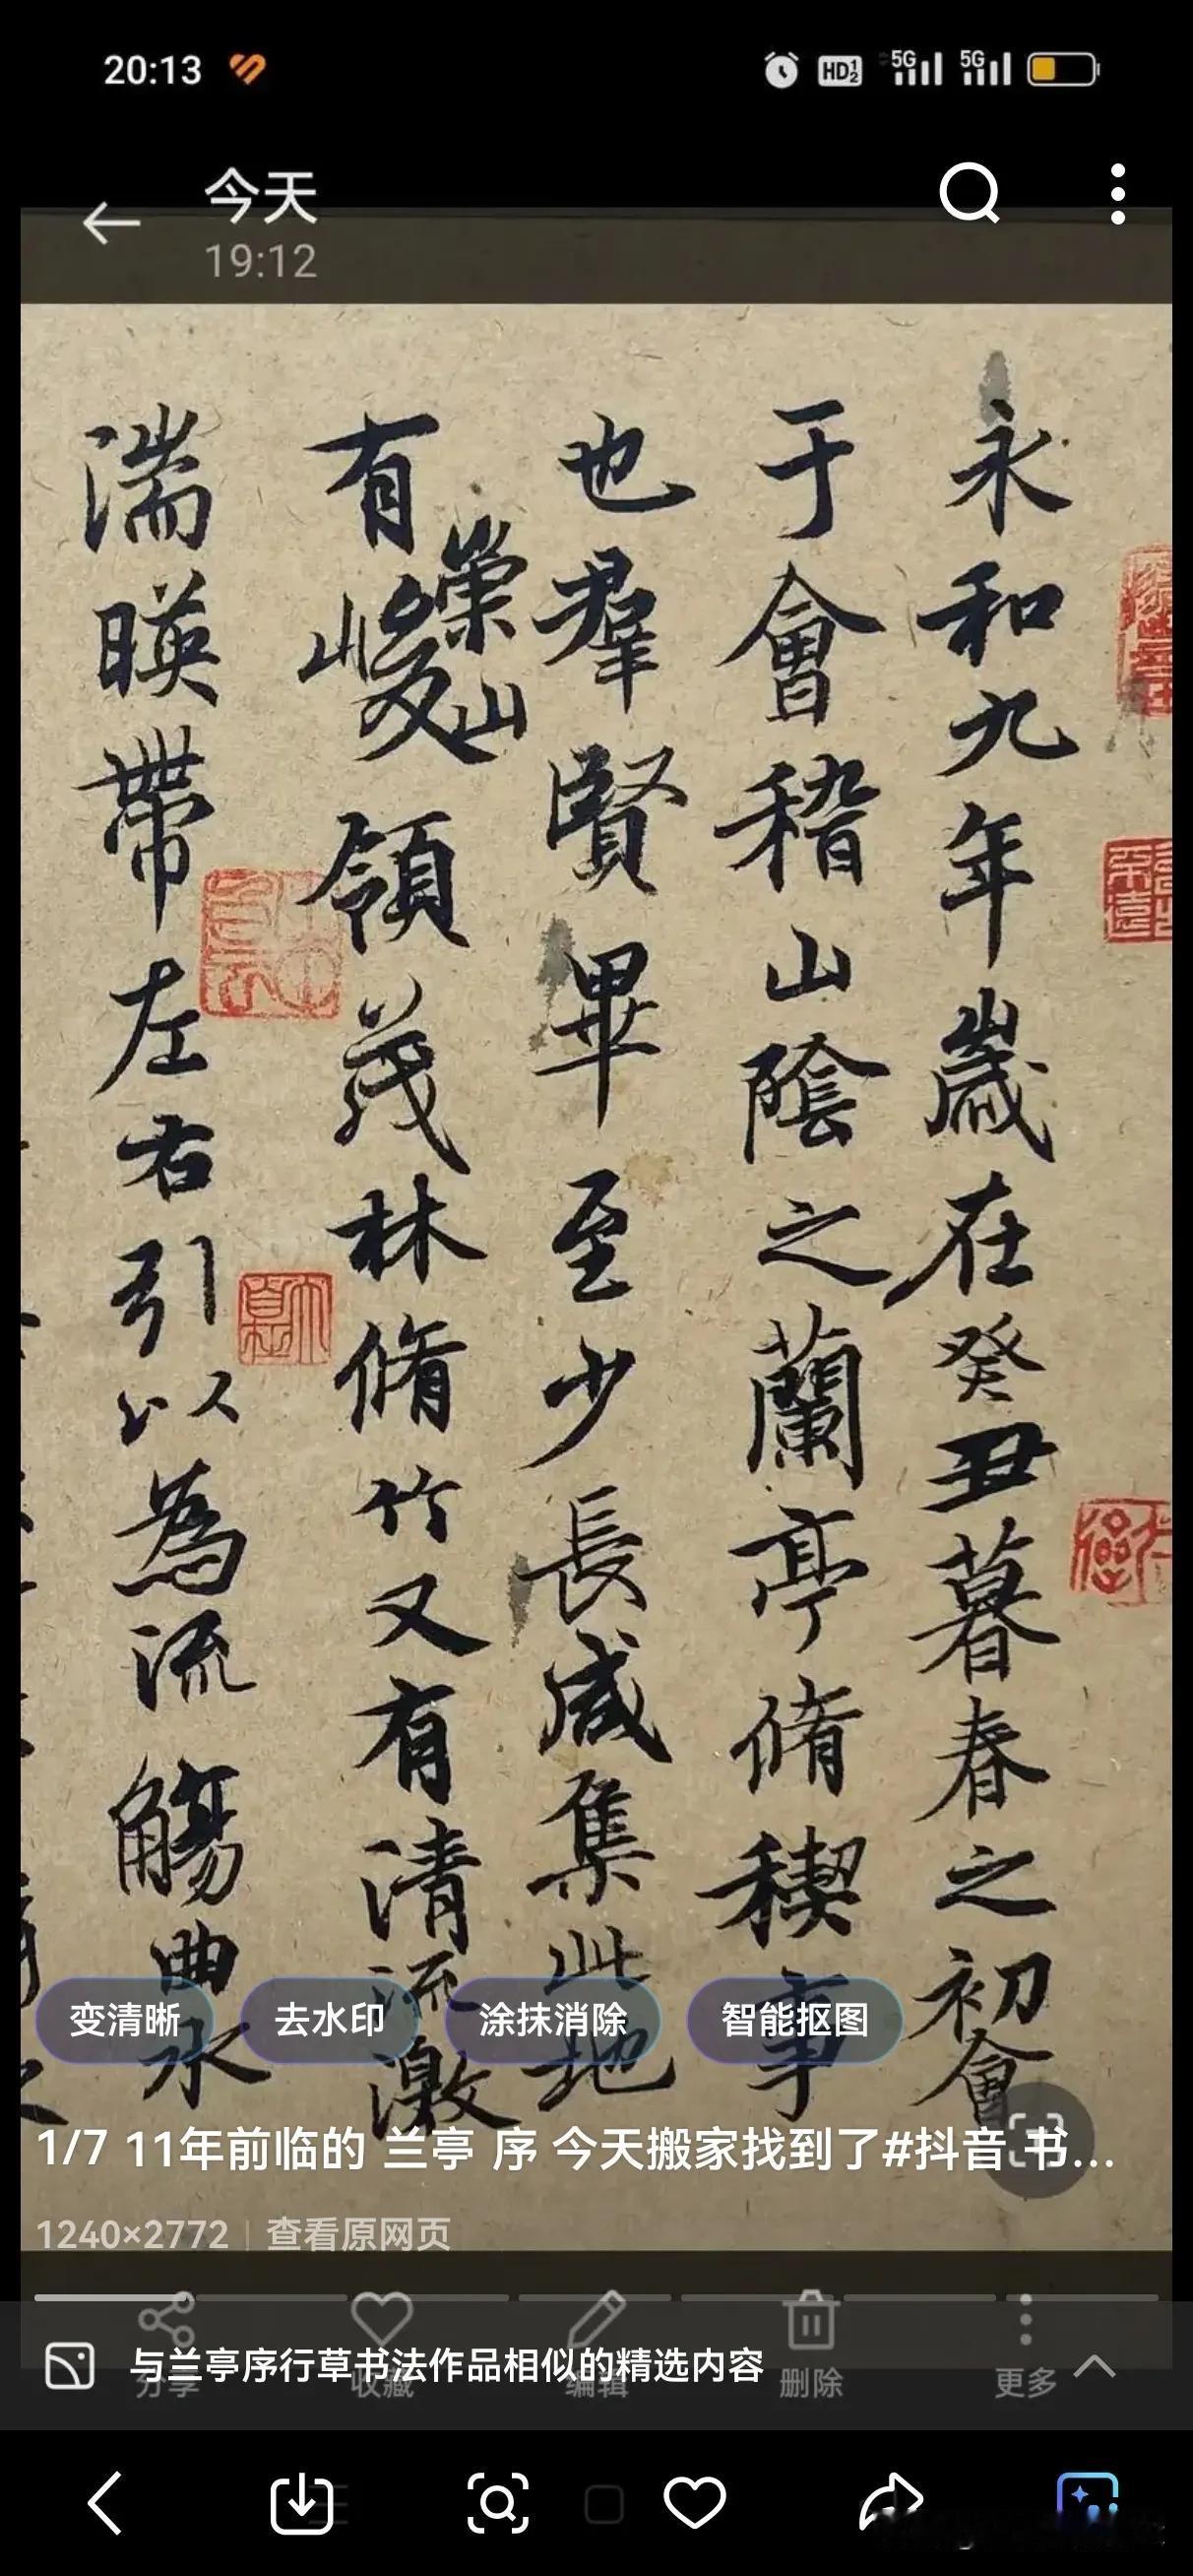 20:13
HD 1 2
5G
5G
今天
19:12
永和九年歲在癸丑暮春之初會
于會稽山陰之蘭亭脩稧事
也羣賢畢至少長咸集此地
有峻領茂林脩竹又有清流激
崇山
湍暎帶左右引以為流觴曲水
变清晰
去水印
涂抹消除
智能抠图
1/7 11年前临的 兰亭 序 今天搬家找到了#抖音 书...
1240×2772 | 查看原网页
分享
收藏
编辑
删除
更多
与兰亭序行草书法作品相似的精选内容